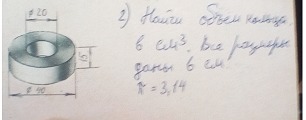 ø 20
15
ø 40
2) Найти объем кольца,
в см³. Все размеры
даны в см
π = 3,14